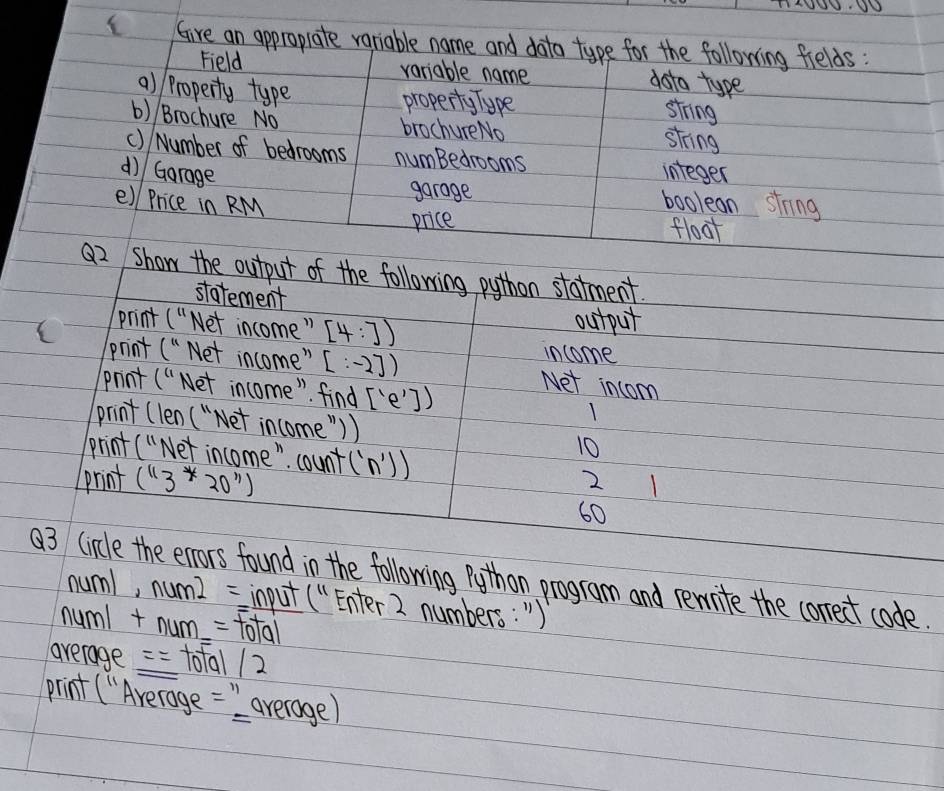 Give an appropiate variable name and data type for the following fields:
Field variable name data type
a) Property type propertyType string
b) Brochure No brochureNo string
c) Number of bedrooms numBedrooms integer
d) Garage garage boolean string
e) Price in RM price float
Q2 Show the output of the following python statment.
statement output
print ("Net income" [4:]) income
print ("Net income" [:-2]) Net incom
print ("Net income".find ['e']) 1
print (len ("Net income")) 10
print ("Net income".count('n')) 2 1
print ("3 * 20") 60
Q3 Circle the errors found in the following Python program and rewrite the correct code.
num1, num2 = input ("Enter 2 numbers:")
num1 + num = total
average == total / 2
print ("Average =" average)